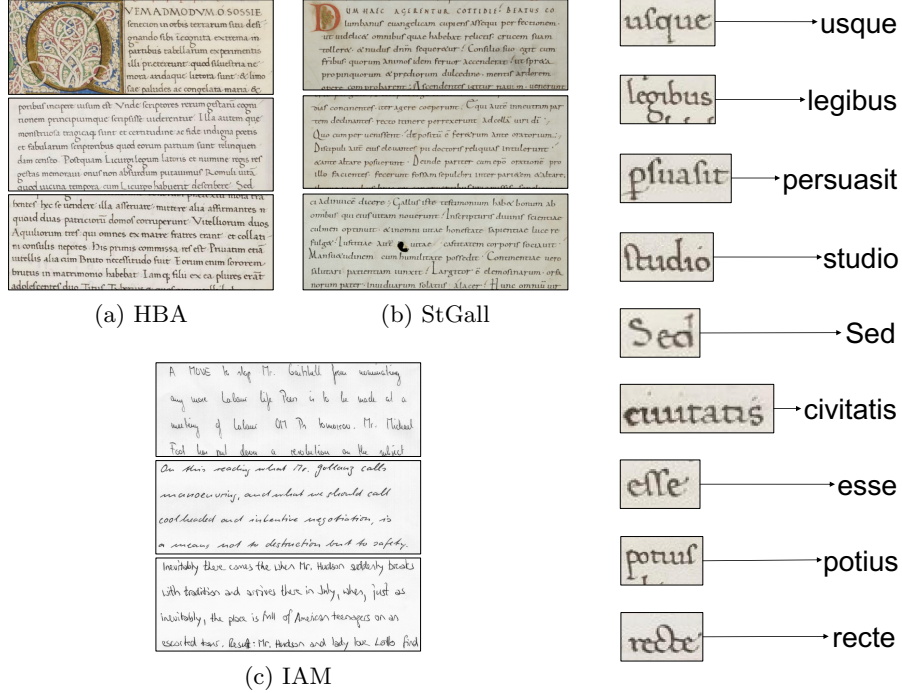 VEMADMODVM. O. SOSSIE
in orbis terrarum situ desi
gnando sibi incognita extrema in
partibus tabellarum experimentis
illi quod siluestria ne
sunt & limo
sae paludes ac congelata maria &
poribus incipere uisum est Vnde scriptores rerum
tionem principiumque scripsisse uiderentur Illa autem que
monstruosa tragicaque sunt et certitudine ac fide indigna poetis
et fabularum scriptoribus quod eorum partium sunt relinquen
da censeo. Postquam Licurgi legum latoris et numine regis res
gestas memoraui onus non absurdum putauimus Romuli uitam
quod uicina tempora cum Licurgo habuerit describere Sed
hec se uendere illa mittere alia affirmantes
quoid duas patriciorū domos corruperunt Vitelliorum duos
Aquiliorum tres qui omnes ex matre fratres erant et collati
ni consulis nepotes His primis commissa res est Priuatim etiā
uitellis alia cum Bruto necessitudo fuit Eorum enim sororem
brutus in matrimonio habebat Iamque filii ex ea plures erāt
adolescentes duo
(a) HBA
DUM HAEC AGERENTUR COTTIDIE BEATUS CO
lumbanus euangelicam cupiens assequi perfectionem
ut uidelicet omnibus quae habebat relictis crucem suam
tolleret & nudus dnm sequeretur Consilia suo egit cum
fribus quorum animos idem feruor accenderat ut spreta
propinquorum & prediorum dulcedine merces arderem
comprobarent
continentes iter agere coeperunt Equi autē
tem dedicantes recto tenore perrexerunt Ad cellā uiri dī
Quo cum peruenissent deposito feretrum ante oratorium
Discipuli autē eius eleuantes pii doctoris reliquias intulerunt
& ante altare posuerunt Deinde pariter cum epō orationē pro
illo facientes fecerunt fossam sepulchri inter parietem & altare
ci adinuicē dicere Gallus iste testimonium habet bonum ab
omibus qui eius uitam nouerunt Inscripturis diuinis scientiae
culmen optinuit & in omni uitae honestate sapientiae luce re
fulget Iustitiae castitatem corporis
Mansuetudinem cum humilitate possedit Continentiae uero
salutari patientiam iunxit Largitor ē elemosinarum orfa
norum pater uiduarum solatius Hunc omnium
(b) StGall
A MOVE to stop Mr. Gaitskell from nominating
any more Labour life Peers is to be made at a
meeting of Labour OM Ps tomorrow. Mr. Michael
Foot has put down a resolution on the subject
On this reading what Mr. Gollanz calls
manoeuring, and what we should call
coolheaded and inventive negotiation, is
a means not to destruction but to safety.
Inevitably there comes the when Mr. Hudson suddenly breaks
with tradition and arrives there in July, when, just as
inevitably, the place is full of American teenagers on an
escorted tour. Result: Mr. Hudson and lady love Lotto find
(c) IAM
usque usque
legibus legibus
ꝑsuasit persuasit
studio studio
Sed Sed
ciuitatis civitatis
esse esse
potius potius
recte recte